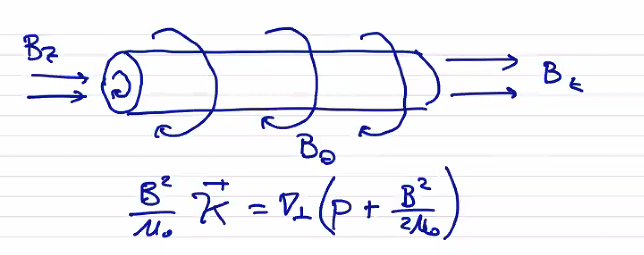 B_z
B_z
B_θ
B²/μ₀ κ⃗ = ∇⊥ (p + B²/2μ₀)